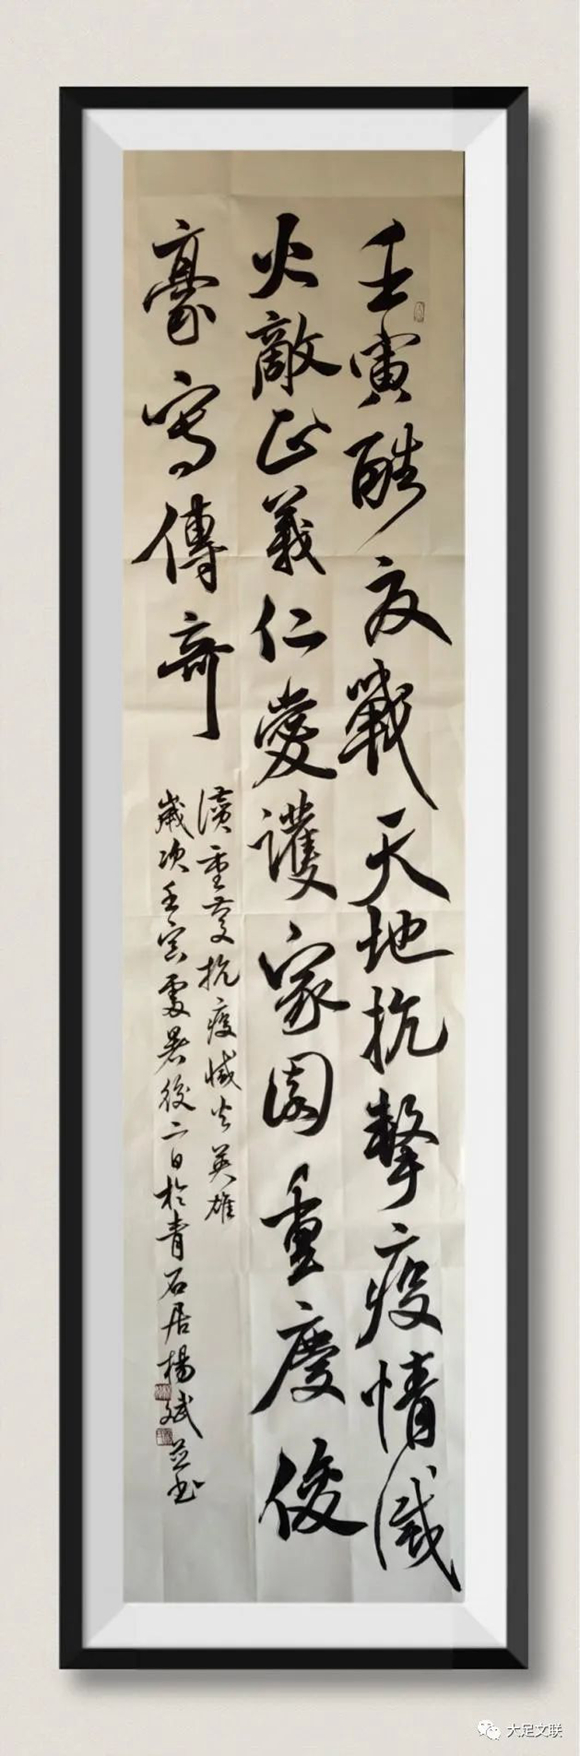 壬寅酷夏戰天地抗擊疫情滅
火敵正義仁愛護家園重慶俊
豪寫傳奇
讀重慶抗疫滅火英雄
歲次壬寅處暑後二日於青石居楊斌並書
大足文联